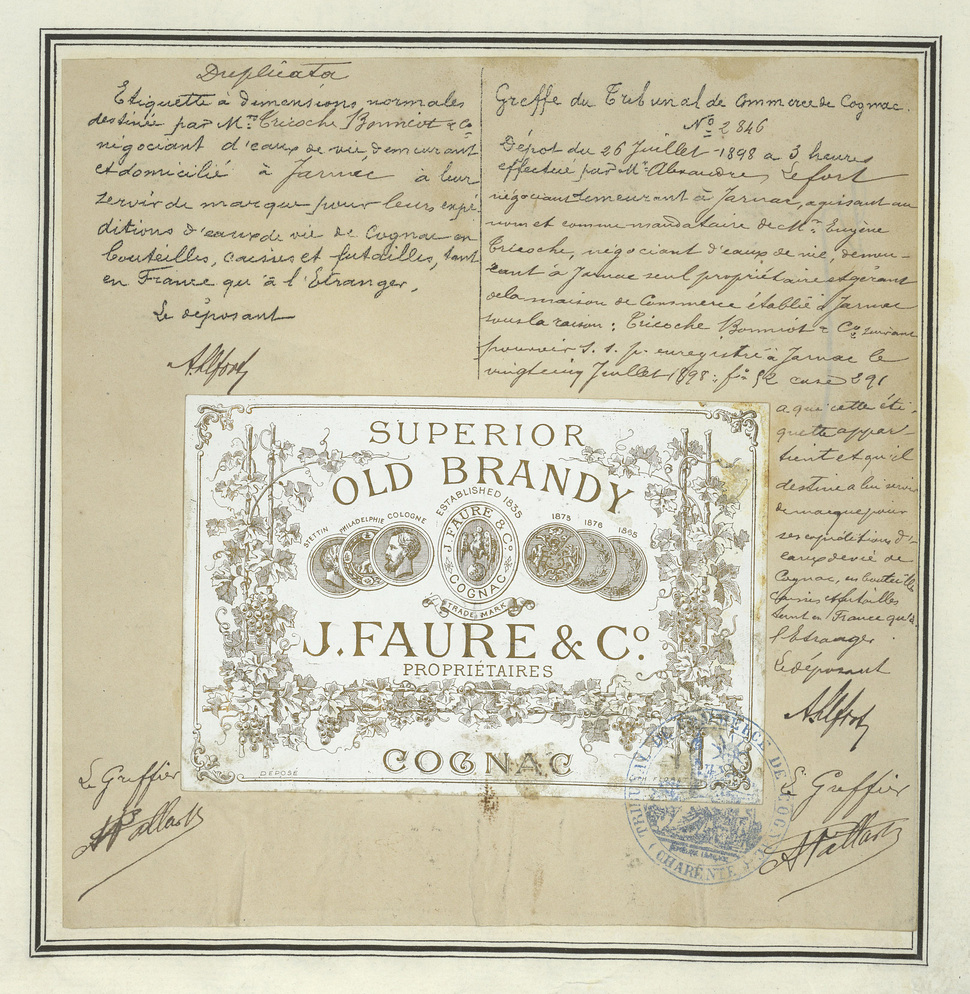 Duplicata
Etiquette à dimensions normales
destinée par Mr. Tricoche Bonniot & Co
négociant d'eaux de vie, demeurant
et domicilié à Jarnac à leur
servir de marque pour leurs expé-
ditions d'eaux de vie de Cognac en
bouteilles, caisses et futailles, tant
en France qu'à l'Etranger,
Le déposant
A. Lefort
Greffe du Tribunal de Commerce de Cognac.
No 2846
Dépot du 26 Juillet 1898 à 3 heures
effectué par Mr Alexandre Lefort
négociant demeurant à Jarnac, agissant au
nom et comme mandataire de Mr. Eugène
Tricoche, négociant d'eaux de vie, demeu-
rant à Jarnac seul propriétaire et gérant
de la maison de Commerce établie à Jarnac
sous la raison : Tricoche Bonniot & Co suivant
pouvoir s. s. p. enregistré à Jarnac le
vingt cinq Juillet 1898 : fo 52 case 291
a qui cette éti-
quette appar-
tient et qu'il
destine a lui servir
de marque pour
ses expéditions d'
eaux de vie de
Cognac, en bouteilles
caisses et futailles
tant en France qu'à
l'Etranger.
Le déposant
A. Lefort
SUPERIOR
OLD BRANDY
STETTIN PHILADELPHIE COLOGNE
ESTABLISHED 1835
J. FAURE & Co
COGNAC
TRADE MARK
1875 1876 1865
J. FAURE & Co.
PROPRIÉTAIRES
COGNAC
DÉPOSÉ
Le Greffier
Le Greffier
TRIBUNAL DE COMMERCE DE COGNAC
(CHARENTE)